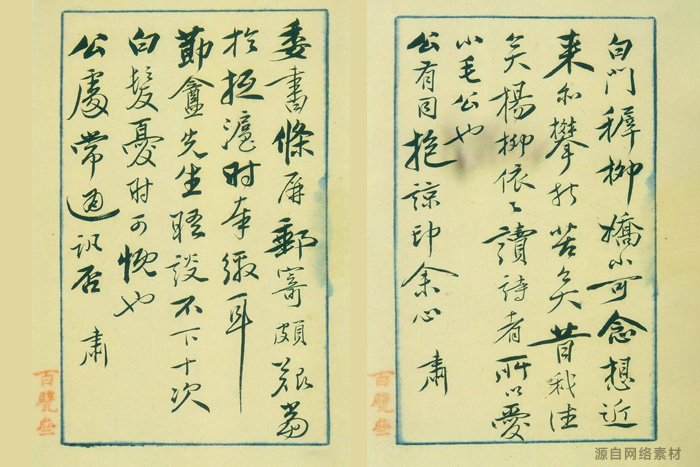 白門稺柳嬌小可念想近
来亦攀折苦矣昔我往
矣楊柳依〻讀詩者所以愛
小毛公也
公有同抱諒印余心 肅
委書條屏郵寄頗艱當
於抵滬時奉繳耳
盦先生晤談不下十次
白髮憂時可慨也
公處常通訊否 肅
百甓
百甓
源自网络素材